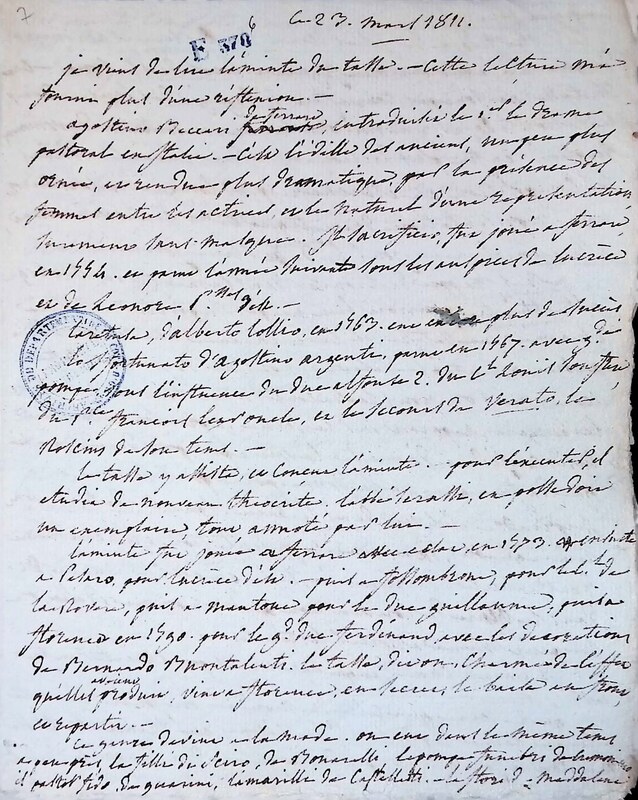 7
6 Ce 23. mars 1811.
E 370
je viens de lire l'aminte du tasse. – Cette lecture m'a
fourni plus d'une réflexion. –
agostino Beccari de ferrare, introduisit le 1er le drame
pastoral en italie. – C'est l'idille des anciens, un peu plus
ornée, et rendue plus dramatique, par la présence des
femmes entre les acteurs, et le naturel d'une représentation
sans masque. Il sacrifizio, fut joué a ferrare
en 1554. et parut l'année suivante sous les auspices de lucrèce
et de leonore d'este. –
l'aretusa, d'alberto Lollio, en 1563. eut encore plus de succès.
lo sfortunato d'agostino argenti, parut en 1567. avec gde
pompe, sous l'influence du duc alfonse 2. du Cal Louis son frère
du pce françois leur oncle, et le secours de Verato, le
Roscius de son tems. –
le tasse y assista, et conçut l'aminte. – pour l'exécuter, il
etudia de nouveau théocrite. l'abbé serassi, en possedoit
un exemplaire, tout annoté par lui. –
l'aminte fut jouée a ferrare avec eclat, en 1573. ensuite
a Pesaro, pour lucrèce d'este. – puis a fossombrone, pour le cal de
la Rovere, puis a mantoue pour le duc guillaume, puis a
florence en 1590. pour le gd duc ferdinand, avec les decorations
de Bernardo Buontalenti. le tasse, dit on, charmé de l'effet
qu'elles avoient produit, vint a florence, en secret, le baisa au front,
et repartit. –
Ce genre devint a la mode. on eut dans le même tems
a peu près, la fille de Sciro, de Bonarelli, la pompe funèbre de cremonini
il pastor fido, de guarini, l'amarille de Castelletti. – la flori de maddalena